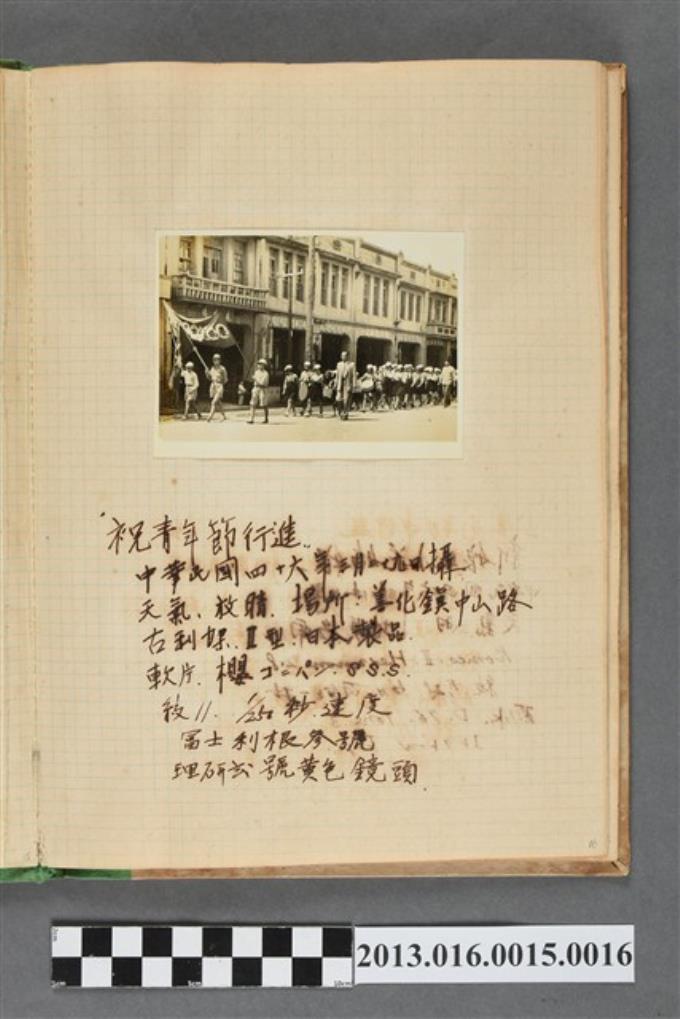 "祝青年節行進"
中華民國四十六年三月二九日攝
天氣、放晴、場所、善化鎮中山路
古利媒、Ⅱ型、日本製品
軟片、櫻コニパン、SSS.
絞11. 1/250秒.速度
冨士利根參號
理研弐號黄色鏡頭.
16
2013.016.0015.0016